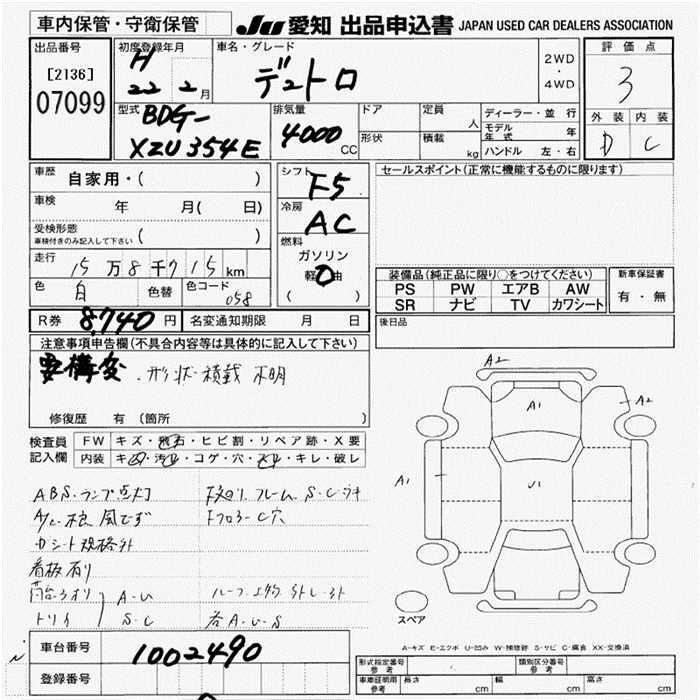 車内保管・守衛保管
JU 愛知 出品申込書 JAPAN USED CAR DEALERS ASSOCIATION
出品番号
[2136]
07099
初度登録年月
H
22 2月
車名・グレード
デュトロ
2WD
・
4WD
評価点
3
外装 内装
D C
型式
BDG-
XZU354E
排気量
4000
CC
ドア
形状
定員
人
積載
kg
ディーラー・並行
モデル年式 年
ハンドル 左・右
車歴
自家用・( )
車検
年 月( 日)
受検形態
車検付きのみ記入して下さい ( )
走行
15万8千715km
色
白
色替
色コード
058
シフト
F5
冷房
AC
燃料
ガソリン
軽油
( )
セールスポイント(正常に機能するものに限ります)
装備品(純正品に限り○をつけてください)
PS PW エアB AW
SR ナビ TV カワシート
新車保証書
有・無
後日品
R券 8,740 円 名変通知期限 月 日
注意事項申告欄(不具合内容等は具体的に記入して下さい)
要構変 .形状・積載 不明
修復歴 有(箇所 )
検査員
記入欄
FW キズ・飛石・ヒビ割・リペア跡・X要
内装 キズ・汚れ・コゲ・穴・スレ・キレ・破レ
ABS・ランプ点灯
A/C 根 風でず
カシート規格外
看板有り
トリイ
A-U
S-C
下廻り.フレーム.S・C
下フロアーC穴
各A・U・S
A2
A1
A2
A1
U1
スペア
A-キズ E-エクボ U-凹み W-補修跡 S-サビ C-腐食 XX-交換済
車台番号 1002490
登録番号
形式指定番号
参考
類別区分番号
参考
車庫証明用
参考
長さ cm 幅 cm 高さ cm